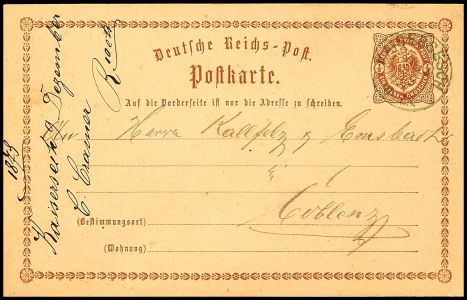 Deutsche Reichs-Post.
Postkarte.
Auf die Vorderseite ist nur die Adresse zu schreiben.
An Herrn Kallfelz & Emsbach
Coblenz
(Bestimmungsort)
(Wohnung)
Kaisersesch Dezember
1873
C. Cramer